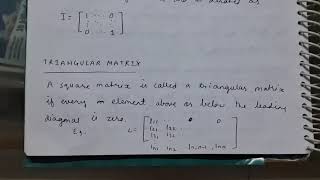 I = [ 1 ... 0
0 ... 1 ]
TRIANGULAR MATRIX
A square matrix is called a triangular matrix
if every element above or below the leading
diagonal is zero.
Eg. L = [ l11 0 0
l21 l22
l31
ln1 ln2 ln,n-1 lnn ]